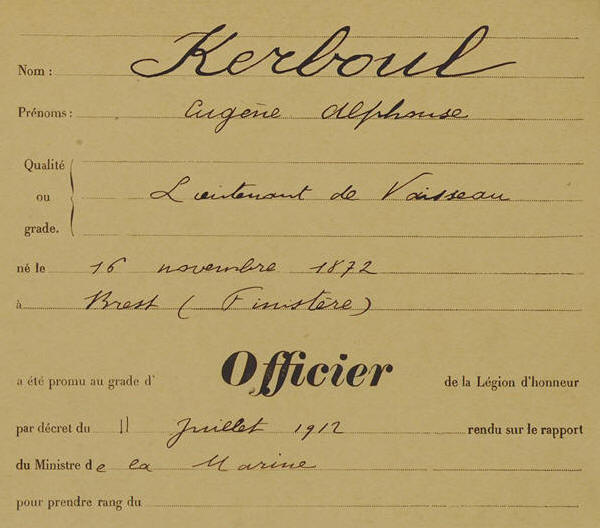 Nom : Kerboul
Prénoms : Eugène Alphonse
Qualité
ou Lieutenant de Vaisseau
grade.
né le 16 novembre 1872
à Brest ( Finistère )
a été promu au grade d' Officier de la Légion d'honneur
par décret du 11 Juillet 1912 rendu sur le rapport
du Ministre de la Marine
pour prendre rang du